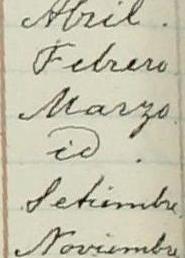 Abril.
Febrero
Marzo
id.
Setiembre
Noviembre